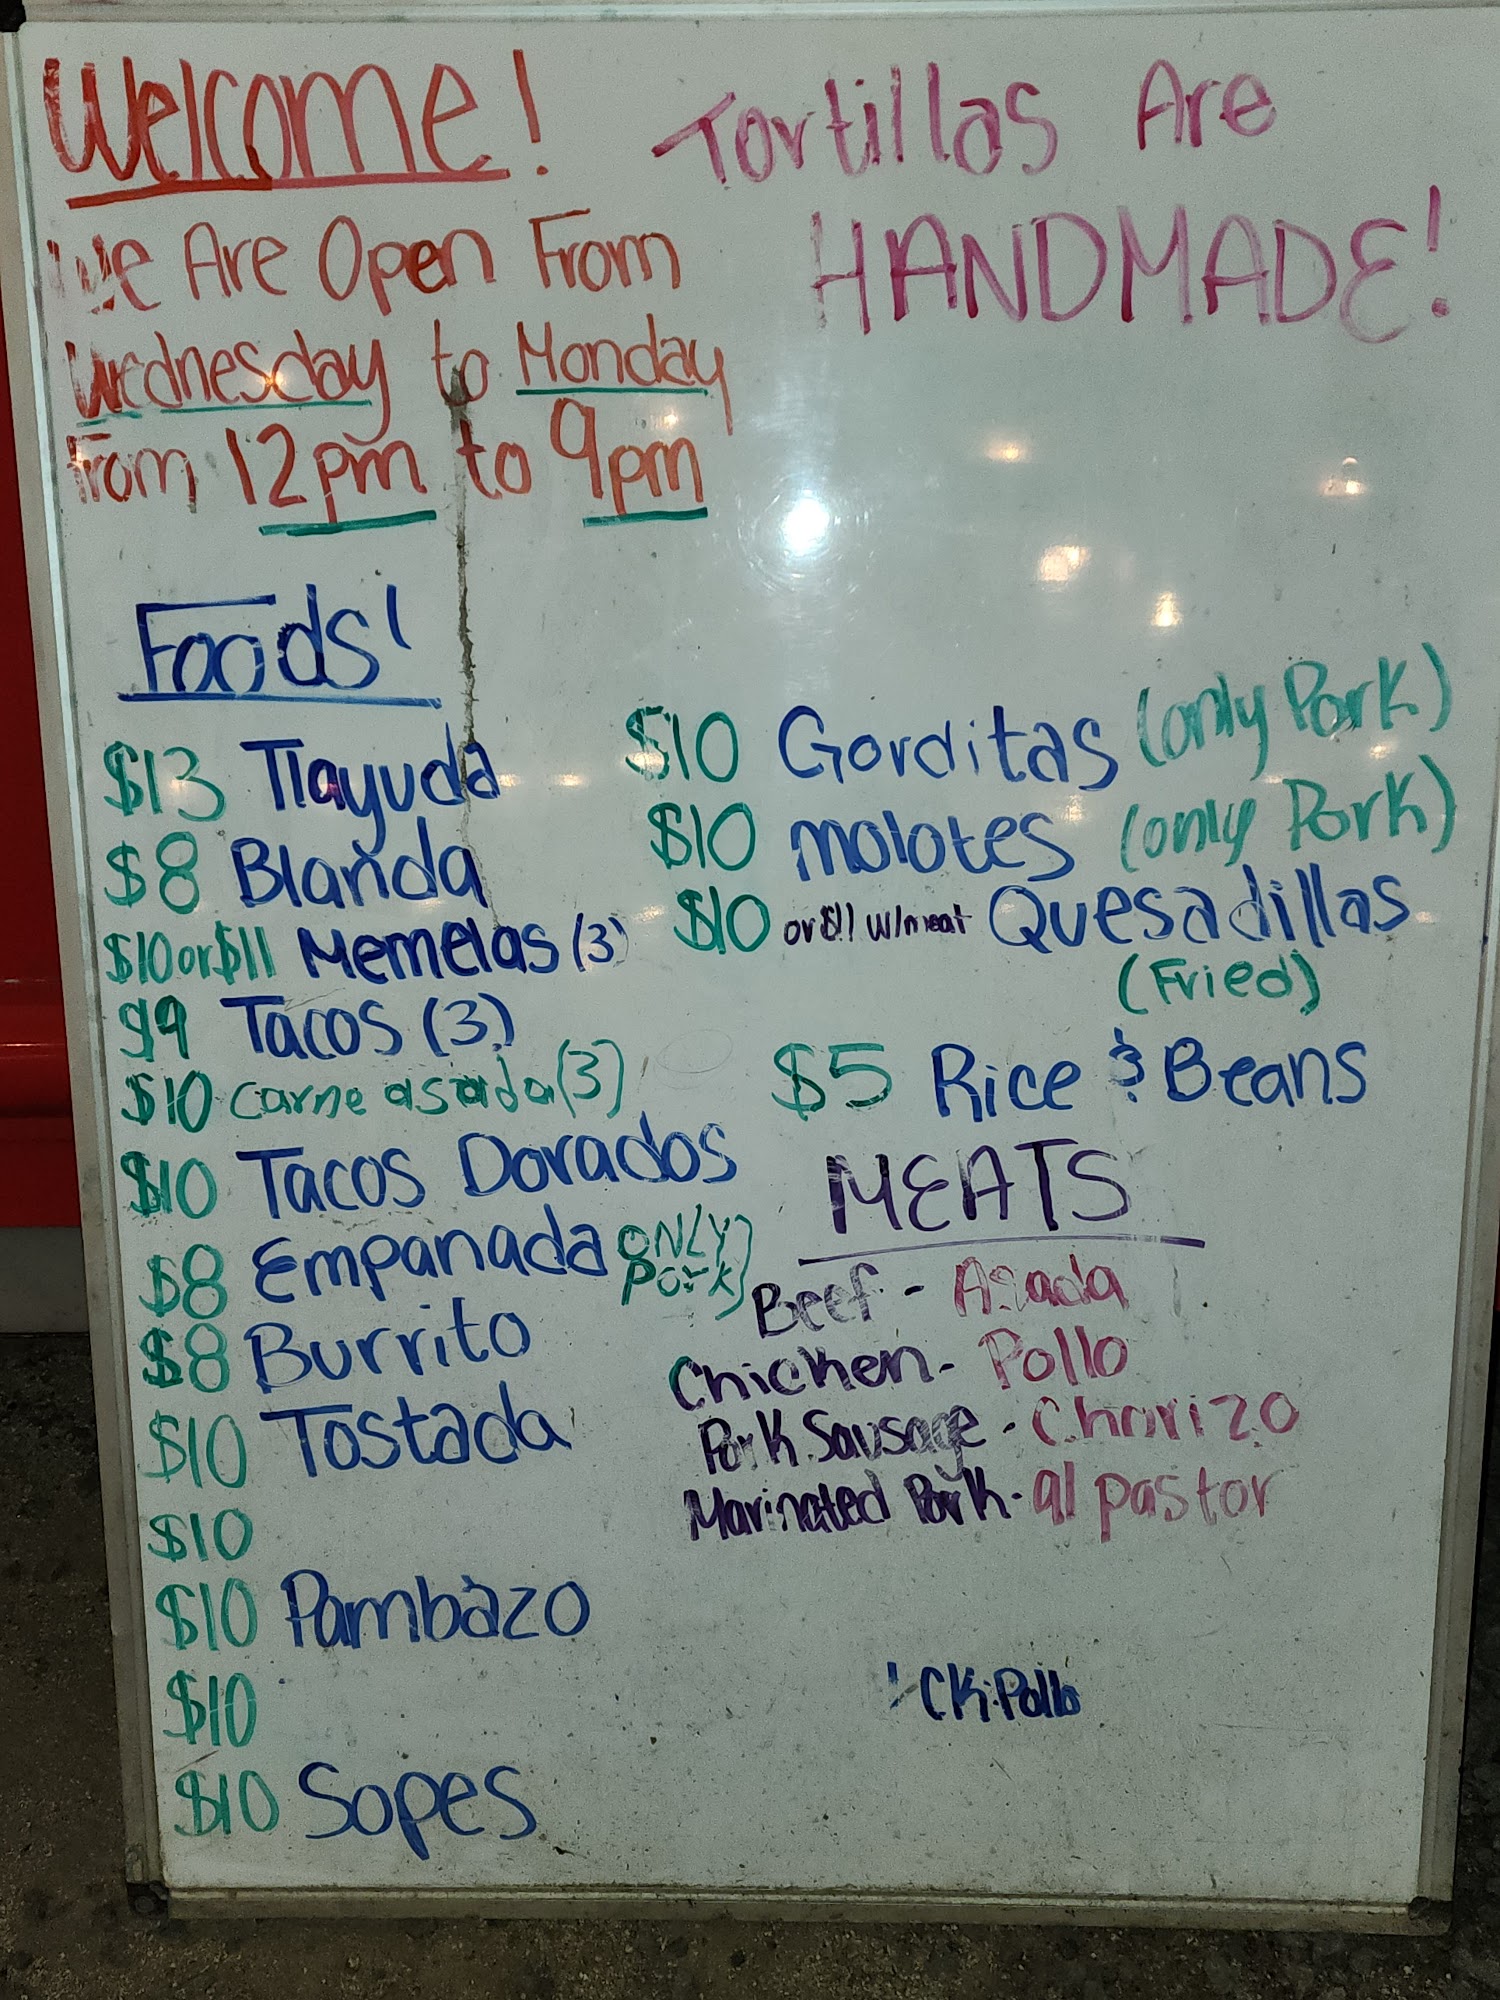 Welcome!
We Are Open From
Wednesday to Monday
From 12pm to 9pm
Tortillas Are
HANDMADE!
Foods!
$13 Tlayuda
$8 Blanda
$10 or $11 Memelas (3)
$9 Tacos (3)
$10 carne asada (3)
$10 Tacos Dorados
$8 Empanada ONLY
Pork)
$8 Burrito
$10 Tostada
$10
$10 Pambazo
$10
$10 Sopes
$10 Gorditas (only Pork)
$10 molotes (only Pork)
$10 or $11 w/meat Quesadillas
(Fried)
$5 Rice & Beans
MEATS
Beef - Asada
Chicken - Pollo
Pork Sausage - Chorizo
Marinated Pork - al pastor
CK:Pollo